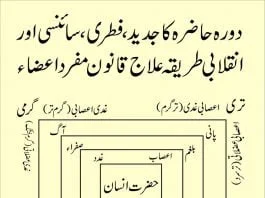 دورہ حاضرہ کا جدید، فطری، سائنسی اور
انقلابی طریقہ علاج قانون مفرد اعضاء
تری اعصابی غدی (تر گرم) غدی اعصابی (گرم تر) گرمی
پانی آگ
بلغم صفراء
اعصاب غدد
حضرت انسان
اعصابی عضلاتی (تر سرد)